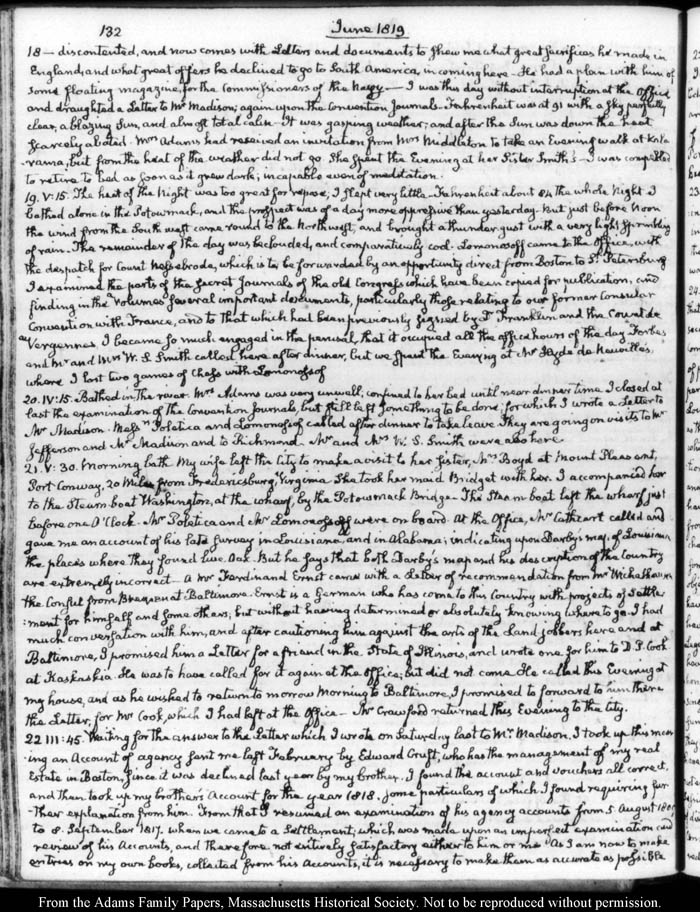 132 June 1819
18 — discontented, and now comes with Letters and documents to shew me what great sacrifices he made in
England, and what great offers he declined to go to South America, in coming here — He had a plan with him of
some floating magazine, for the Commissioners of the Navy — I was this day without interruption at the Office
and draughted a Letter to Mr Madison; again upon the Convention Journals. Fahrenheit was at 91 with a sky perfectly
clear, a blazing Sun, and almost total calm — It was gasping weather; and after the Sun was down the heat
scarcely abated. Mrs Adams had received an invitation from Mrs Middleton to take an Evening walk at Kala-
rama, but from the heat of the weather did not go. She spent the Evening at her Sister Smith's — I was compelled
to retire to bed as soon as it grew dark; incapable even of meditation.
19. V:15. The heat of the Night was too great for repose; I slept very little — Fahrenheit about 84 the whole Night I
bathed alone in the Potowmack, and the prospect was of a day more oppressive than yesterday. But just before Noon
the wind from the South west came round to the Northwest, and brought a thunder gust with a very light sprinkling
of rain. The remainder of the day was beclouded, and comparatively cool. Lomonosoff came to the Office, with
the despatch for Count Nesselrode, which is to be forwarded by an opportunity direct from Boston to St. Petersburg
I examined the parts of the secret Journals of the old Congress which have been copied for publication, and
finding in the Volumes several important documents, particularly those relating to our former Consular
Convention with France, and to that which had been previously signed by Dr Franklin and the Count de
Vergennes I became so much engaged in the perusal, that it occupied all the office hours of the day Forbes
and Mr and Mrs W. S. Smith called here after dinner, but we spent the Evening at Mr Hyde de Neuville's
where I lost two games of Chess with Lomonosoff
20. IV:15. Bathed in the river. Mrs Adams was very unwell; confined to her bed until near dinner time I closed at
last the examination of the Convention Journals, but still left something to be done; for which I wrote a Letter to
Mr Madison. Messrs Poletica and Lomonosoff called after dinner to take leave. They are going on visits to Mr
Jefferson and Mr Madison and to Richmond — Mr and Mrs W. S. Smith were also here
21. V:30. Morning bath. My wife left the City to make a visit to her sister, Mrs Boyd at Mount Pleasant,
Port Conway, 20 Miles from Fredericsburg, Virginia She took her maid Bridget with her. I accompanied her
to the Steam-boat Washington, at the wharf, by the Potowmack Bridge — The Steam boat left the wharf just
before one O'Clock — Mr Poletica and Mr Lomonosoff were on board. At the Office, Mr Cathcart called and
gave me an account of his late survey in Louisiana, and in Alabama; indicating upon Darby's map of Louisiana
the places where they found live Oak. But he says that both Darby's map and his description of the Country
are extremely incorrect — A Mr Ferdinand Ernst came with a Letter of recommendation from Mr Wichelhausen
the Consul from Bremen at Baltimore. Ernst is a German who has come to this Country with projects of settle
:ment for himself and some others; but without having determined or absolutely knowing where to go. I had
much conversation with him, and after cautioning him against the arts of the Land jobbers here and at
Baltimore, I promised him a Letter for a friend in the State of Illinois, and wrote one for him to D. P. Cook
at Kaskaskia. He was to have called for it again at the Office; but did not come. He called this Evening at
my house, and as he wished to return to morrow Morning to Baltimore, I promised to forward to him there
the Letter, for Mr Cook, which I had left at the Office — Mr Crawford returned this Evening to the City.
22 III:45. Waiting for the answer to the Letter which I wrote on Saturday last to Mr. Madison. I took up this morn-
ing an Account of agency sent me last February by Edward Cruft; who has the management of my real
Estate in Boston, since it was declined last year by my brother. I found the account and vouchers all correct,
and then took up my brother's Account for the year 1818, some particulars of which I found requiring fur-
-ther explanation from him. From that I resumed an examination of his agency accounts from 5 August 1809
to 8. September 1817. when we came to a Settlement, which was made upon an imperfect examination and
review of his Accounts, and therefore not entirely satisfactory either to him or me. As I am now to make
entries on my own books, collected from his Accounts, it is necessary to make them as accurate as possible
From the Adams Family Papers, Massachusetts Historical Society. Not to be reproduced without permission.